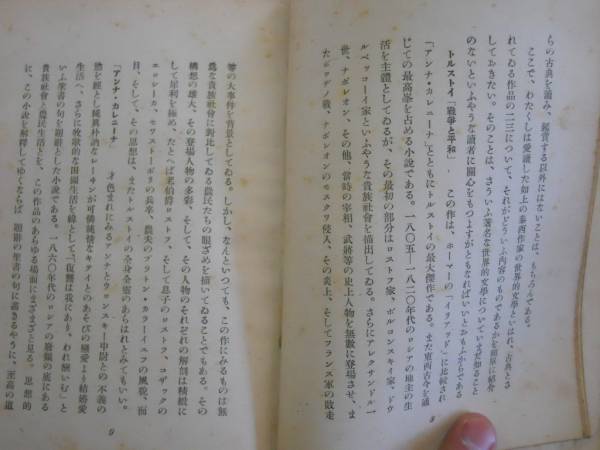 らの古典を読み、鑑賞する以外にはないことは、もちろんである。
ここで、わたくしは愛読した如上の泰西作家の世界的文学といはれ、古典とさ
れてゐる作品の二三について、それがどういふ内容のものであるかを簡単に紹介
しておきたい。そのことは、さういふ著名な世界的文学についていまだ知ること
のないといふやうな読者に関心をもつよすがともなればいいとおもふからである
トルストイ『戦争と平和』 この作は、ホーマーの『イリアッド』に比較され
『アンナ・カレニーナ』とともにトルストイの最大傑作である。また東西古今を通
じての最高峯を占める小説である。一八〇五―一八二〇年代のロシアの地主の生
活を主體としてゐるが、その最初の部分はロストフ家、ボルコンスキイ家、ドウ
ルベツコーイ家といふやうな貴族社會を描出してゐる。さらにアレクサンドル一
世、ナポレオン、その他、當時の宰相、武將等の史上人物を無數に登場させ、ま
たボロヂノ戰、ナポレオンのモスクワ侵入、その炎上、そしてフランス軍の敗走
8
等の大事件を背景としてゐる。しかし、なんといつても、この作にみるものは無
爲な貴族社會に對比してゐる農民たちの眼ざめを描いてゐることでもある。その
構想の雄大、その登場人物の多彩、そして、その人物のそれぞれの解剖は精緻に
して犀利を極め、たとへば老伯爵ロストフ、そして息子のロストフ、コザックの
エロシーカ、セワストーポリの兵卒、農夫のプラトン・カラターエフの風貌、面
目、そして、その思想は、またトルストイの全身全靈のあらはれとみてもいい。
『アンナ・カレニーナ』 才色まれにみるアンナとウロンスキー中尉との不義の
戀を經とし純眞朴訥なレーヰンが可憐純情なキテイとのあそびの戀愛より結婚愛
生活へ、さらに牧歌的な田園生活を緯として「復讐は我にあり、われ酬いむ」と
いふ聖書の句を題辭とした小説である。一八六〇年代のロシアの最頽の底にある
貴族社會と農民生活とを、この作品のあらゆる場面にまざまざと見る。 思想的
に、この小説を解釋してゆくならば 題辭の聖書の句に盡きるやうに、至高の道
9